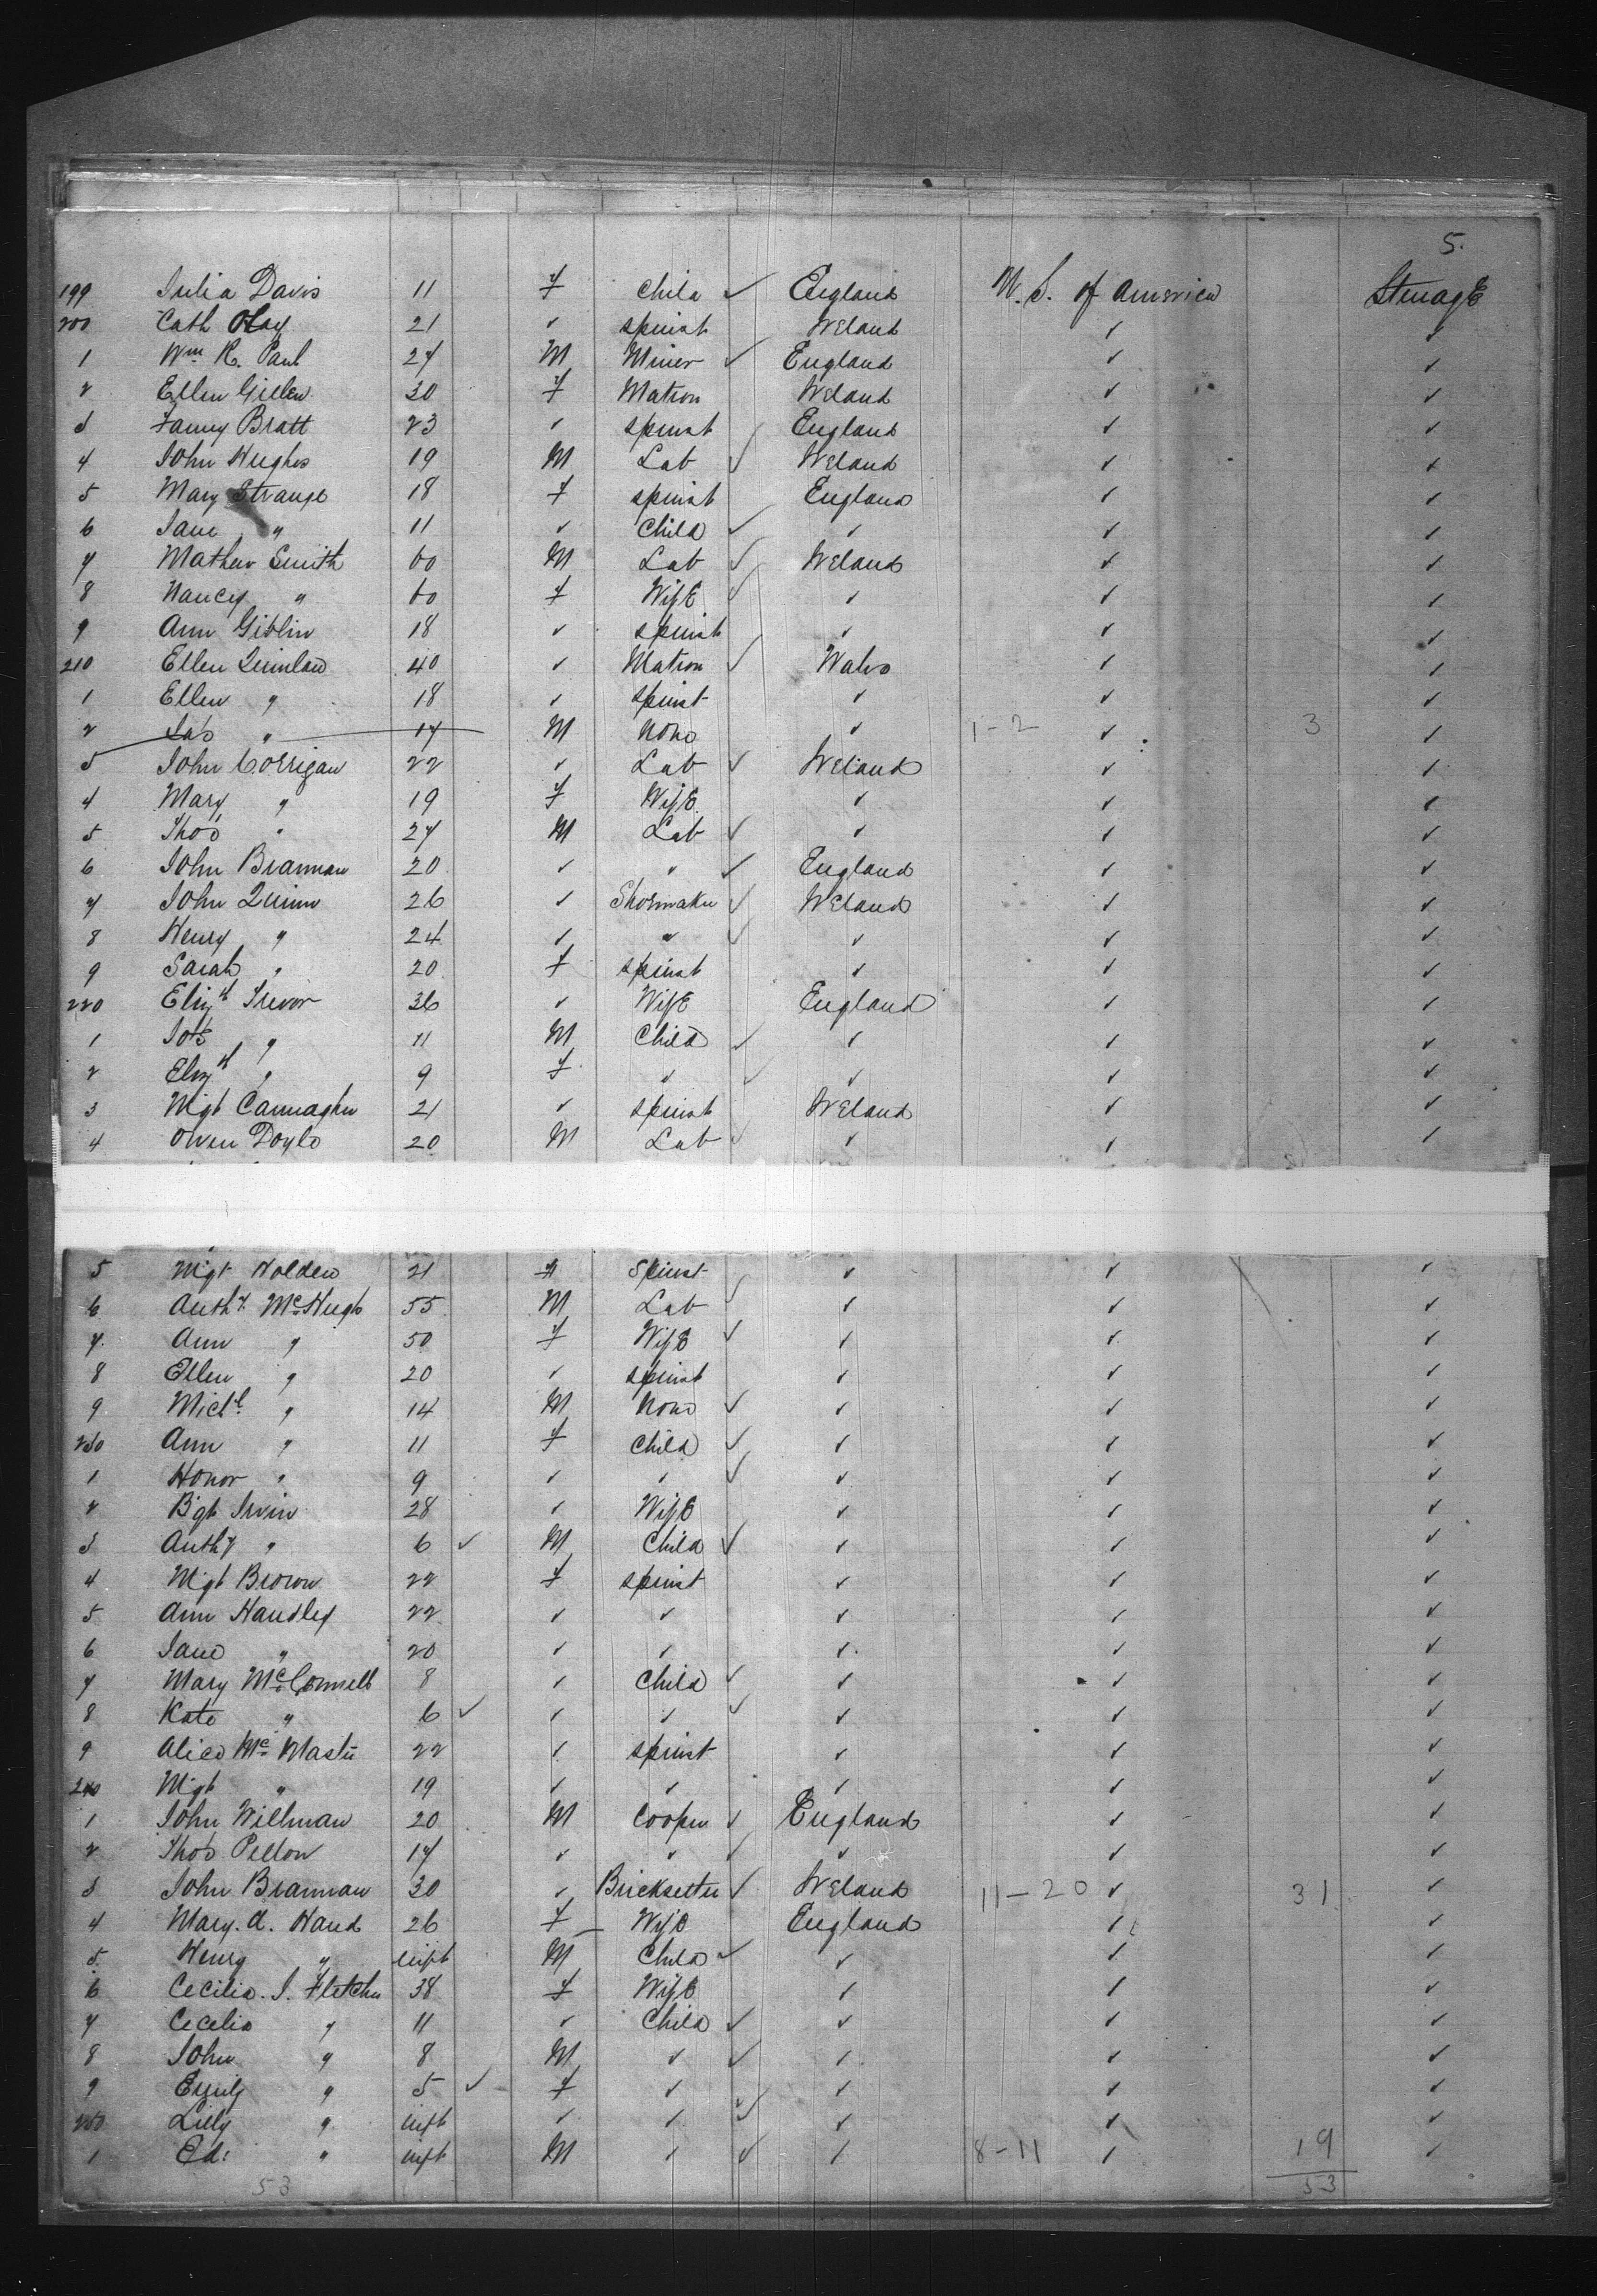 5.
199 Julia Davis 11 f Child ✓ England U. S. of America Steerage
200 Cath Olay 21 ✓ spinst Ireland ✓ ✓
1 Wm R. Paul 27 M Miner ✓ England ✓ ✓
2 Ellen Gillen 30 f Matron Ireland ✓ ✓
3 Fanny Bratt 23 ✓ spinst England ✓ ✓
4 John Hughes 19 M Lab ✓ Ireland ✓ ✓
5 Mary Strange 18 f spinst England ✓ ✓
6 Jane " 11 ✓ Child ✓ ✓ ✓ ✓
7 Mathew Smith 60 M Lab ✓ Ireland ✓ ✓
8 Nancy " 60 f Wife ✓ ✓ ✓ ✓
9 Ann Giblin 18 ✓ spinst ✓ ✓ ✓
210 Ellen Quinlan 40 ✓ Matron ✓ Wales ✓ ✓
1 Ellen " 18 ✓ spinst ✓ ✓ ✓
2 Jas " 17 M None ✓ 1-2 ✓ 3 ✓
3 John Corrigan 22 ✓ Lab ✓ Ireland ✓ ✓
4 Mary " 19 f Wife ✓ ✓ ✓
5 Thos " 27 M Lab ✓ ✓ ✓ ✓
6 John Brannan 20 ✓ " ✓ England ✓ ✓
7 John Quinn 26 ✓ Shoemaker ✓ Ireland ✓ ✓
8 Henry " 24 ✓ " ✓ ✓ ✓ ✓
9 Sarah " 20 f spinst ✓ ✓ ✓
220 Elizth Trevor 36 ✓ Wife England ✓ ✓
1 Jos " 11 M Child ✓ ✓ ✓ ✓
2 Elizth " 9 f ✓ ✓ ✓ ✓ ✓
3 Mgt Cannagher 21 ✓ spinst Ireland ✓ ✓
4 Owen Doyle 20 M Lab ✓ ✓ ✓ ✓
5 Mgt Holden 21 f Spinst ✓ ✓ ✓ ✓
6 Anthy McHugh 55 M Lab ✓ ✓ ✓ ✓
7 Ann " 50 f Wife ✓ ✓ ✓ ✓
8 Ellen " 20 ✓ spinst ✓ ✓ ✓
9 Michl " 14 M None ✓ ✓ ✓ ✓
230 Ann " 11 f Child ✓ ✓ ✓ ✓
1 Honor " 9 ✓ ✓ ✓ ✓ ✓ ✓
2 Bgt Irvin 28 ✓ Wife ✓ ✓ ✓
3 Anthy " 6 ✓ M Child ✓ ✓ ✓ ✓
4 Mgt Brown 22 f spinst ✓ ✓ ✓
5 Ann Handley 22 ✓ ✓ ✓ ✓ ✓
6 Jane " 20 ✓ ✓ ✓ ✓ ✓
7 Mary McConnell 8 ✓ Child ✓ ✓ ✓ ✓
8 Kate " 6 ✓ ✓ ✓ ✓ ✓ ✓ ✓
9 Alice McMaster 22 ✓ spinst ✓ ✓ ✓
240 Mgt " 19 ✓ ✓ ✓ ✓ ✓
1 John Willman 20 M Cooper ✓ England ✓ ✓
2 Thos Pelton 17 ✓ ✓ ✓ ✓ ✓ ✓
3 John Brannan 30 ✓ Bricksetter ✓ Ireland 11-20 ✓ 31 ✓
4 Mary. A. Hand 26 f Wife England ✓ ✓
5 Henry " inft M Child ✓ ✓ ✓ ✓
6 Cecilia. J. Fletcher 38 f Wife ✓ ✓ ✓
7 Cecelia " 11 ✓ Child ✓ ✓ ✓ ✓
8 John " 8 M ✓ ✓ ✓ ✓ ✓
9 Emily " 5 ✓ f ✓ ✓ ✓ ✓
250 Lilly " inft ✓ ✓ ✓ ✓ ✓ ✓
1 Ed: " inft M ✓ ✓ ✓ 8-11 ✓ 19 ✓
53 53